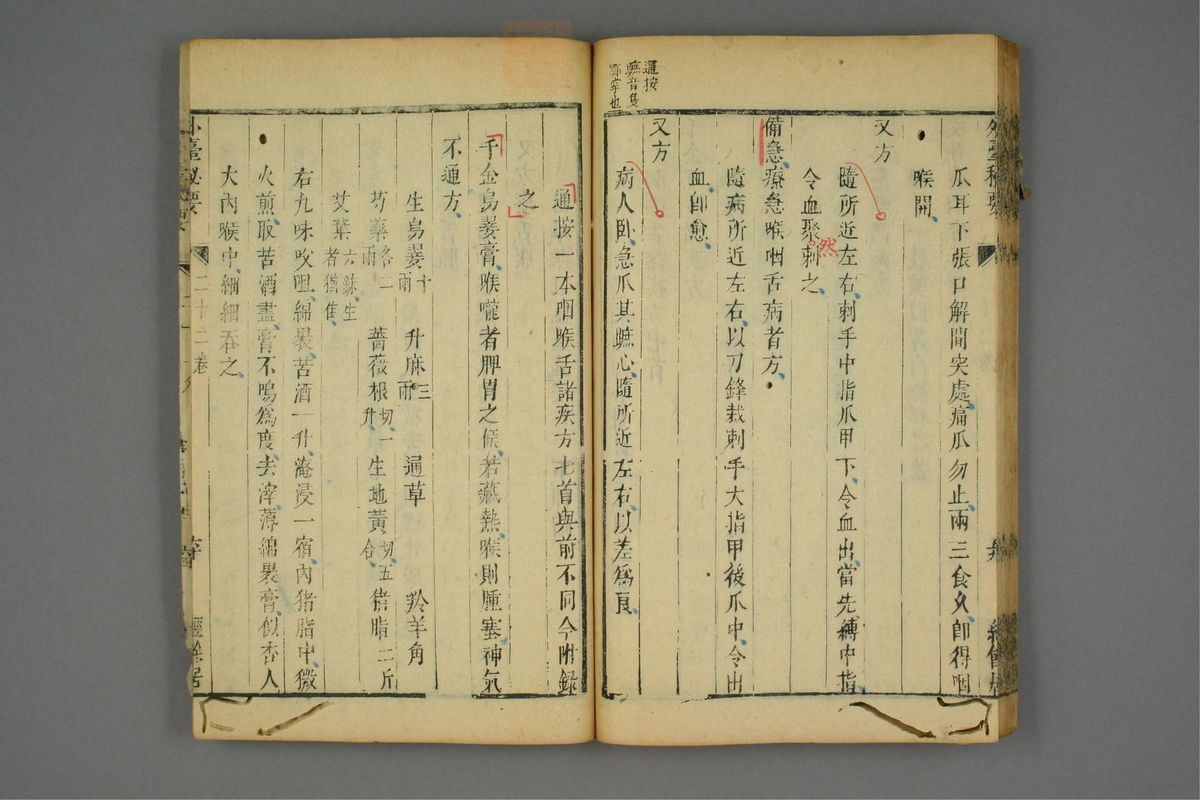 通按
蹠音隻
外臺秘要
瓜耳下張口解間突處痛瓜勿止兩三食久卽得咽
喉開
又方
隨所近左右刺手中指爪甲下令血出當先縛中指
令血聚刺之
然
備急療急喉咽舌病者方
隨病所近左右以刀鋒裁刺手大指甲後爪中令出
血卽愈
又方
病人臥急爪其蹠心隨所近左右以差爲良
通按一本咽喉舌諸疾方七首與前不同今附錄
之
千金烏䕮膏喉嚨者脾胃之候若藏熱喉則腫塞神氣
不通方
生烏䕮十兩 升麻三兩 通草 羚羊角
芍藥各二兩 薔薇根切一升 生地黃切五合 猪脂二斤
艾葉六銖生者猶佳
右九味㕮咀綿裹苦酒一升淹浸一宿內猪脂中微
火煎取苦酒盡膏不鳴爲度去滓薄綿裹膏似杏人
大內喉中細細吞之
外臺秘要
二十二卷
經餘居